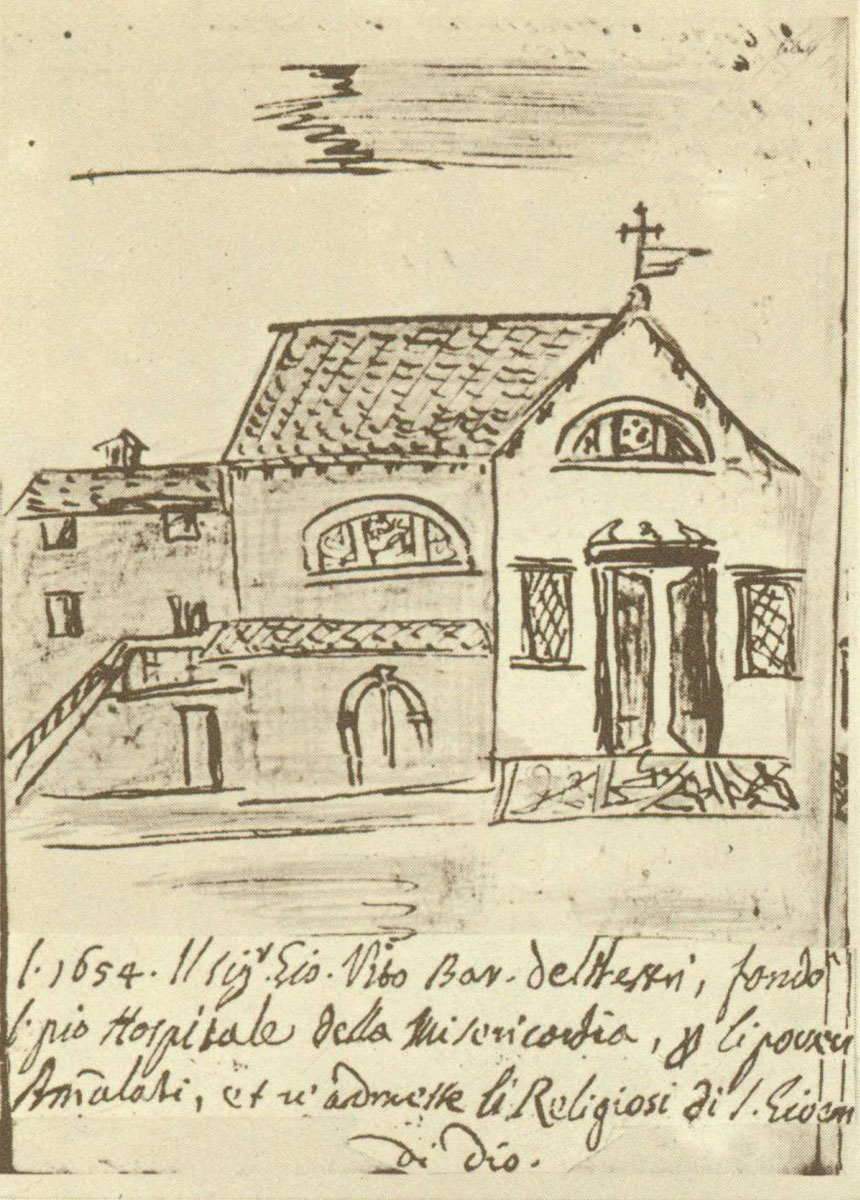 l. 1654. Il sigr. Gio. Vito Bar. delMestri, fondò
l. pio Hospitale della Misericordia, li poveri
Amalati, et v'admesse li Religiosi di S. Giovan
di dio.